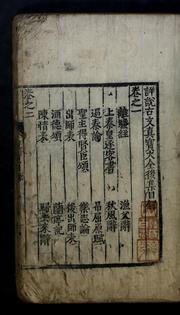 詳說古文眞寶大全後集目錄
卷之一
離騷經
漁父辭
上秦皇逐客書
秋風辭
過秦論
弔屈原賦
聖主得賢臣頌
樂志論
出師表
後出師表
酒德頌
蘭亭記
陳情表
歸去來辭
卷之二